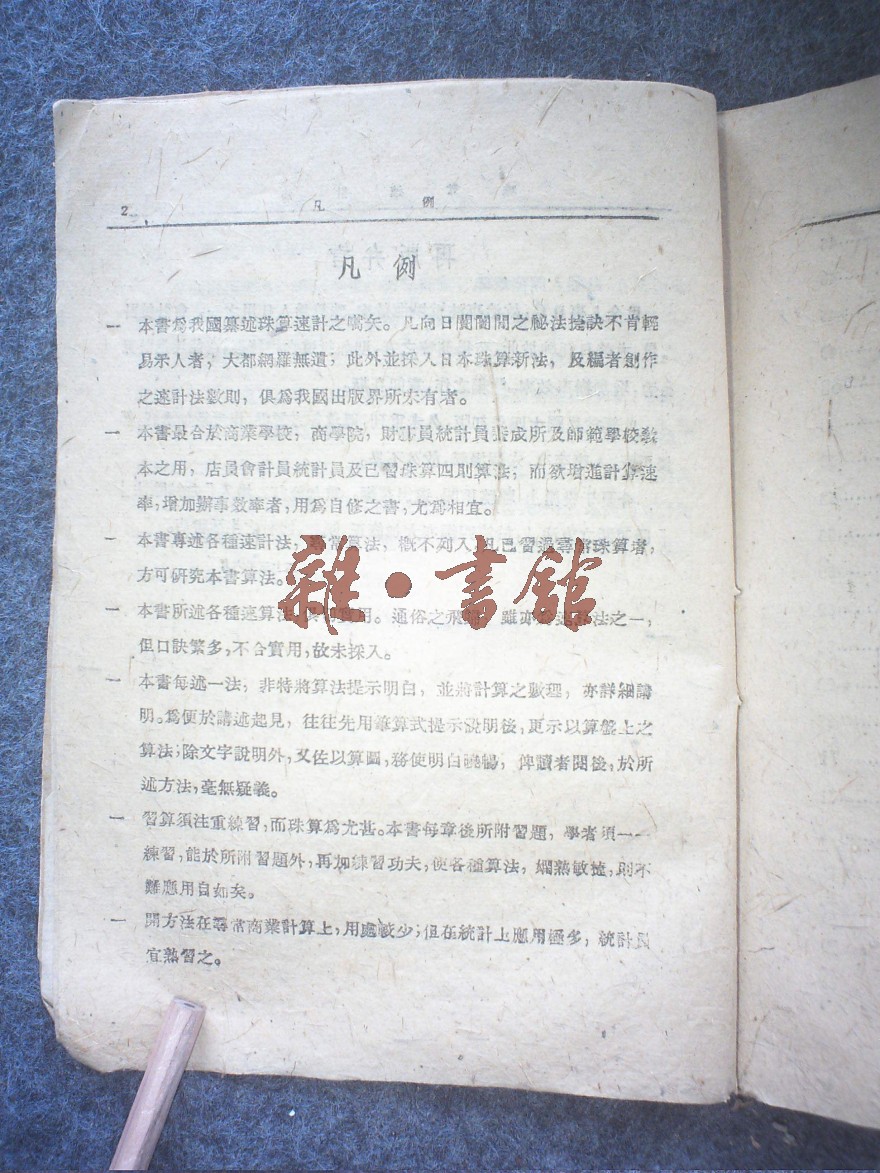 2
凡 例
凡 例
一 本書爲我國纂述珠算速計之嚆矢。凡向日闤闠間之祕法捷訣不肯輕
易示人者，大都網羅無遺；此外並採入日本珠算新法，及編者創作
之速計法數則，俱爲我國出版界所未有者。
一 本書最合於商業學校，商學院，財政員統計員養成所及師範學校教
本之用，店員會計員統計員及已習珠算四則算法，而欲增進計算速
率，增加辦事效率者，用爲自修之書，尤爲相宜。
一 本書專述各種速計法，尋常算法，概不列入，凡已習過尋常珠算者，
方可研究本書算法。
一 本書所述各種速算法，用。通俗之飛 雖亦 法之一，
但口訣繁多，不合實用，故未採入。
一 本書每述一法，非特將算法提示明白，並將計算之數理，亦詳細講
明。爲便於講述起見，往往先用筆算式提示說明後，更示以算盤上之
算法；除文字說明外，又佐以算圖，務使明白曉暢，俾讀者閱後，於所
述方法，毫無疑義。
一 習算須注重練習，而珠算爲尤甚。本書每章後所附習題，學者須一一
練習，能於所附習題外，再加練習功夫，使各種算法，嫻熟敏捷，則不
難應用自如矣。
一 開方法在尋常商業計算上，用處較少；但在統計上應用極多，統計員
宜熟習之。
雜·書館